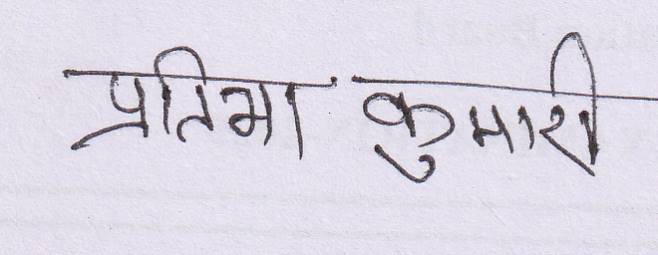 प्रतिभा कुमारी